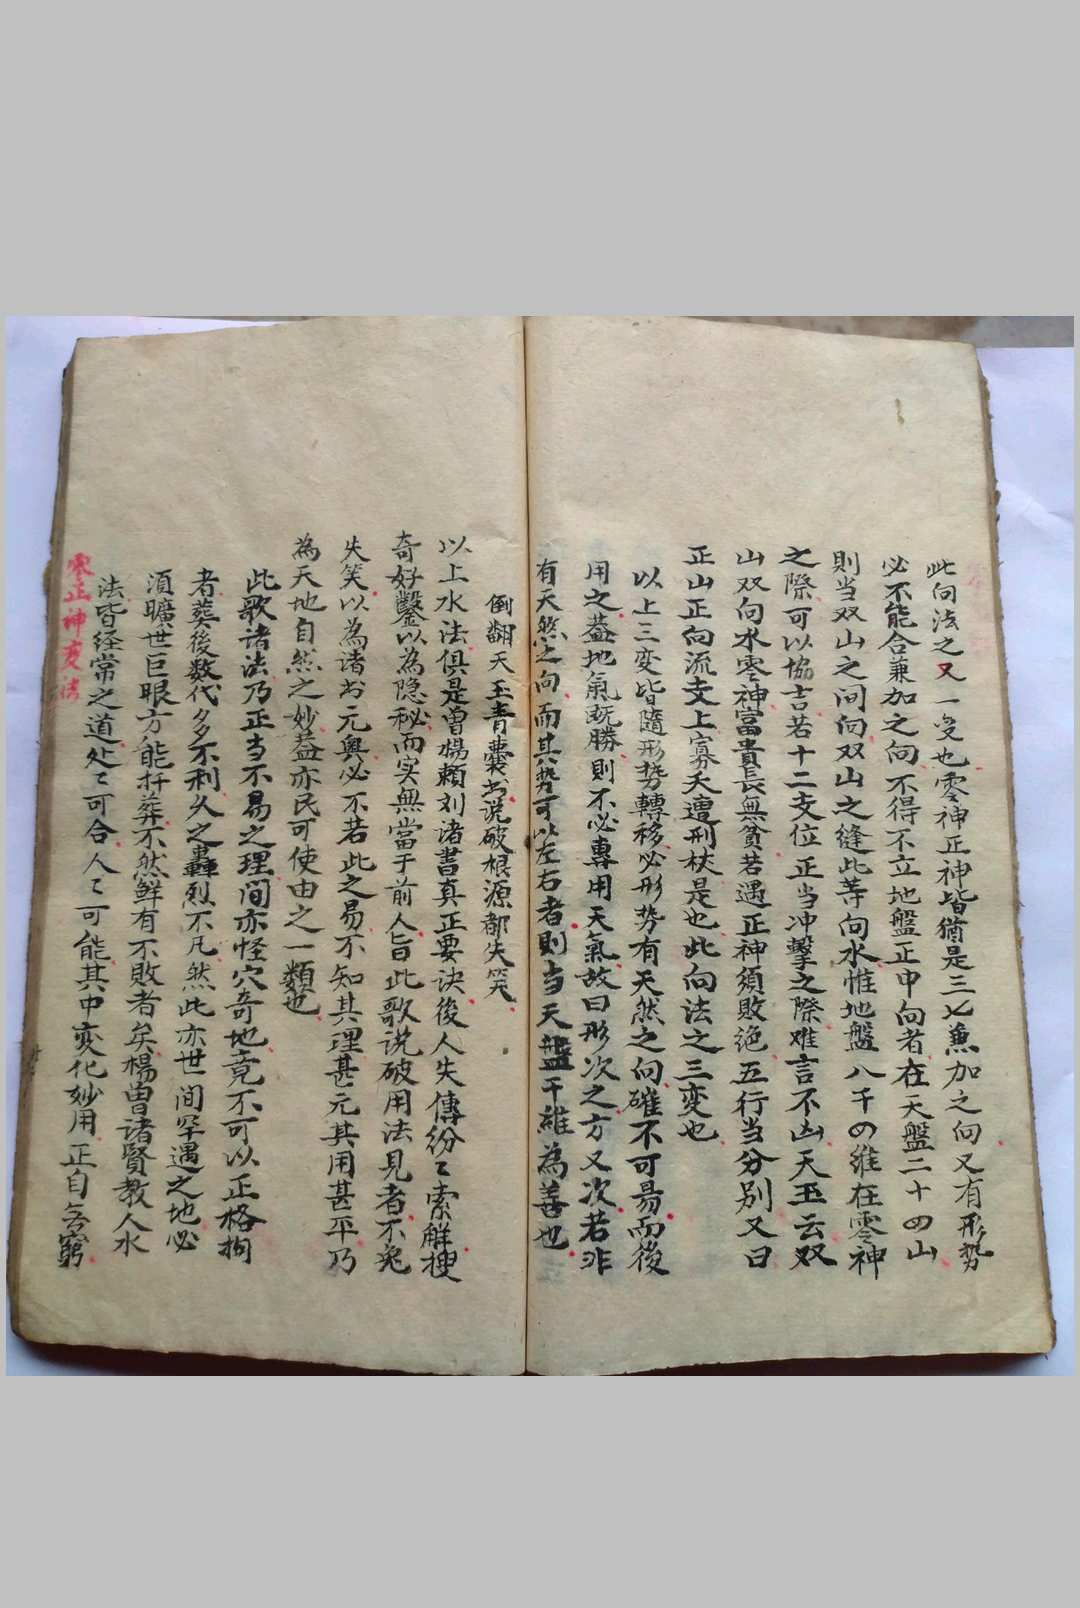 此向法之又一变也零神正神皆猶是三七兼加之向又有形势
必不能合兼加之向不得不立地盤正中向者在天盤二十四山
則当双山之间向双山之缝此等向水惟地盤八干四维在零神
之際可以協吉若十二支位正当冲擊之際难言不凶天玉云双
山双向水零神富貴長無貧若遇正神須敗绝五行当分别又曰
正山正向流支上寡夭遭刑杖是也此向法之三变也
以上三变皆隨形势轉移必形势有天然之向確不可易而後
用之蓋地氣既勝則不必專用天氣故曰形次之方又次若非
有天然之向而其势可以左右者則当天盤干維為善也
倒翻天玉青囊书说破根源都失笑
以上水法俱是曾楊賴刘诸書真正要诀後人失傳纷〻索解搜
奇好鑿以為隐秘而实無當于前人旨此歌说破用法見者不免
失笑以為诸书元奥必不若此之易不知其理甚元其用甚平乃
為天地自然之妙蓋亦民可使由之一類也
此歌诸法乃正当不易之理間亦怪穴奇地竟不可以正格拘
者葬後数代多不利久之轟烈不凡然此亦世间罕遇之地必
須曠世巨眼方能扦葬不然鲜有不敗者矣楊曾諸賢教人水
法皆经常之道处〻可合人〻可能其中变化妙用正自無窮
零正神变法